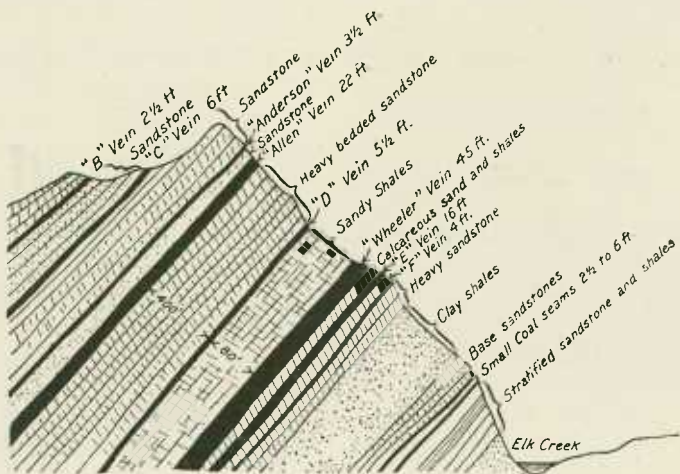 "B" Vein 2½ ft
Sandstone
"C" Vein 6ft
Sandstone
"Anderson" Vein 3½ Ft
Sandstone
"Allen" Vein 22 ft
Heavy bedded sandstone
"D" Vein 5½ ft.
Sandy Shales
"Wheeler" Vein 45 ft.
Calcareous sand and shales
"E" Vein 16 ft
"F" Vein 4 ft.
Heavy sandstone
Clay shales
Base sandstones
Small Coal seams 2½ to 6 ft
Stratified sandstone and shales
400'
80'
Elk Creek